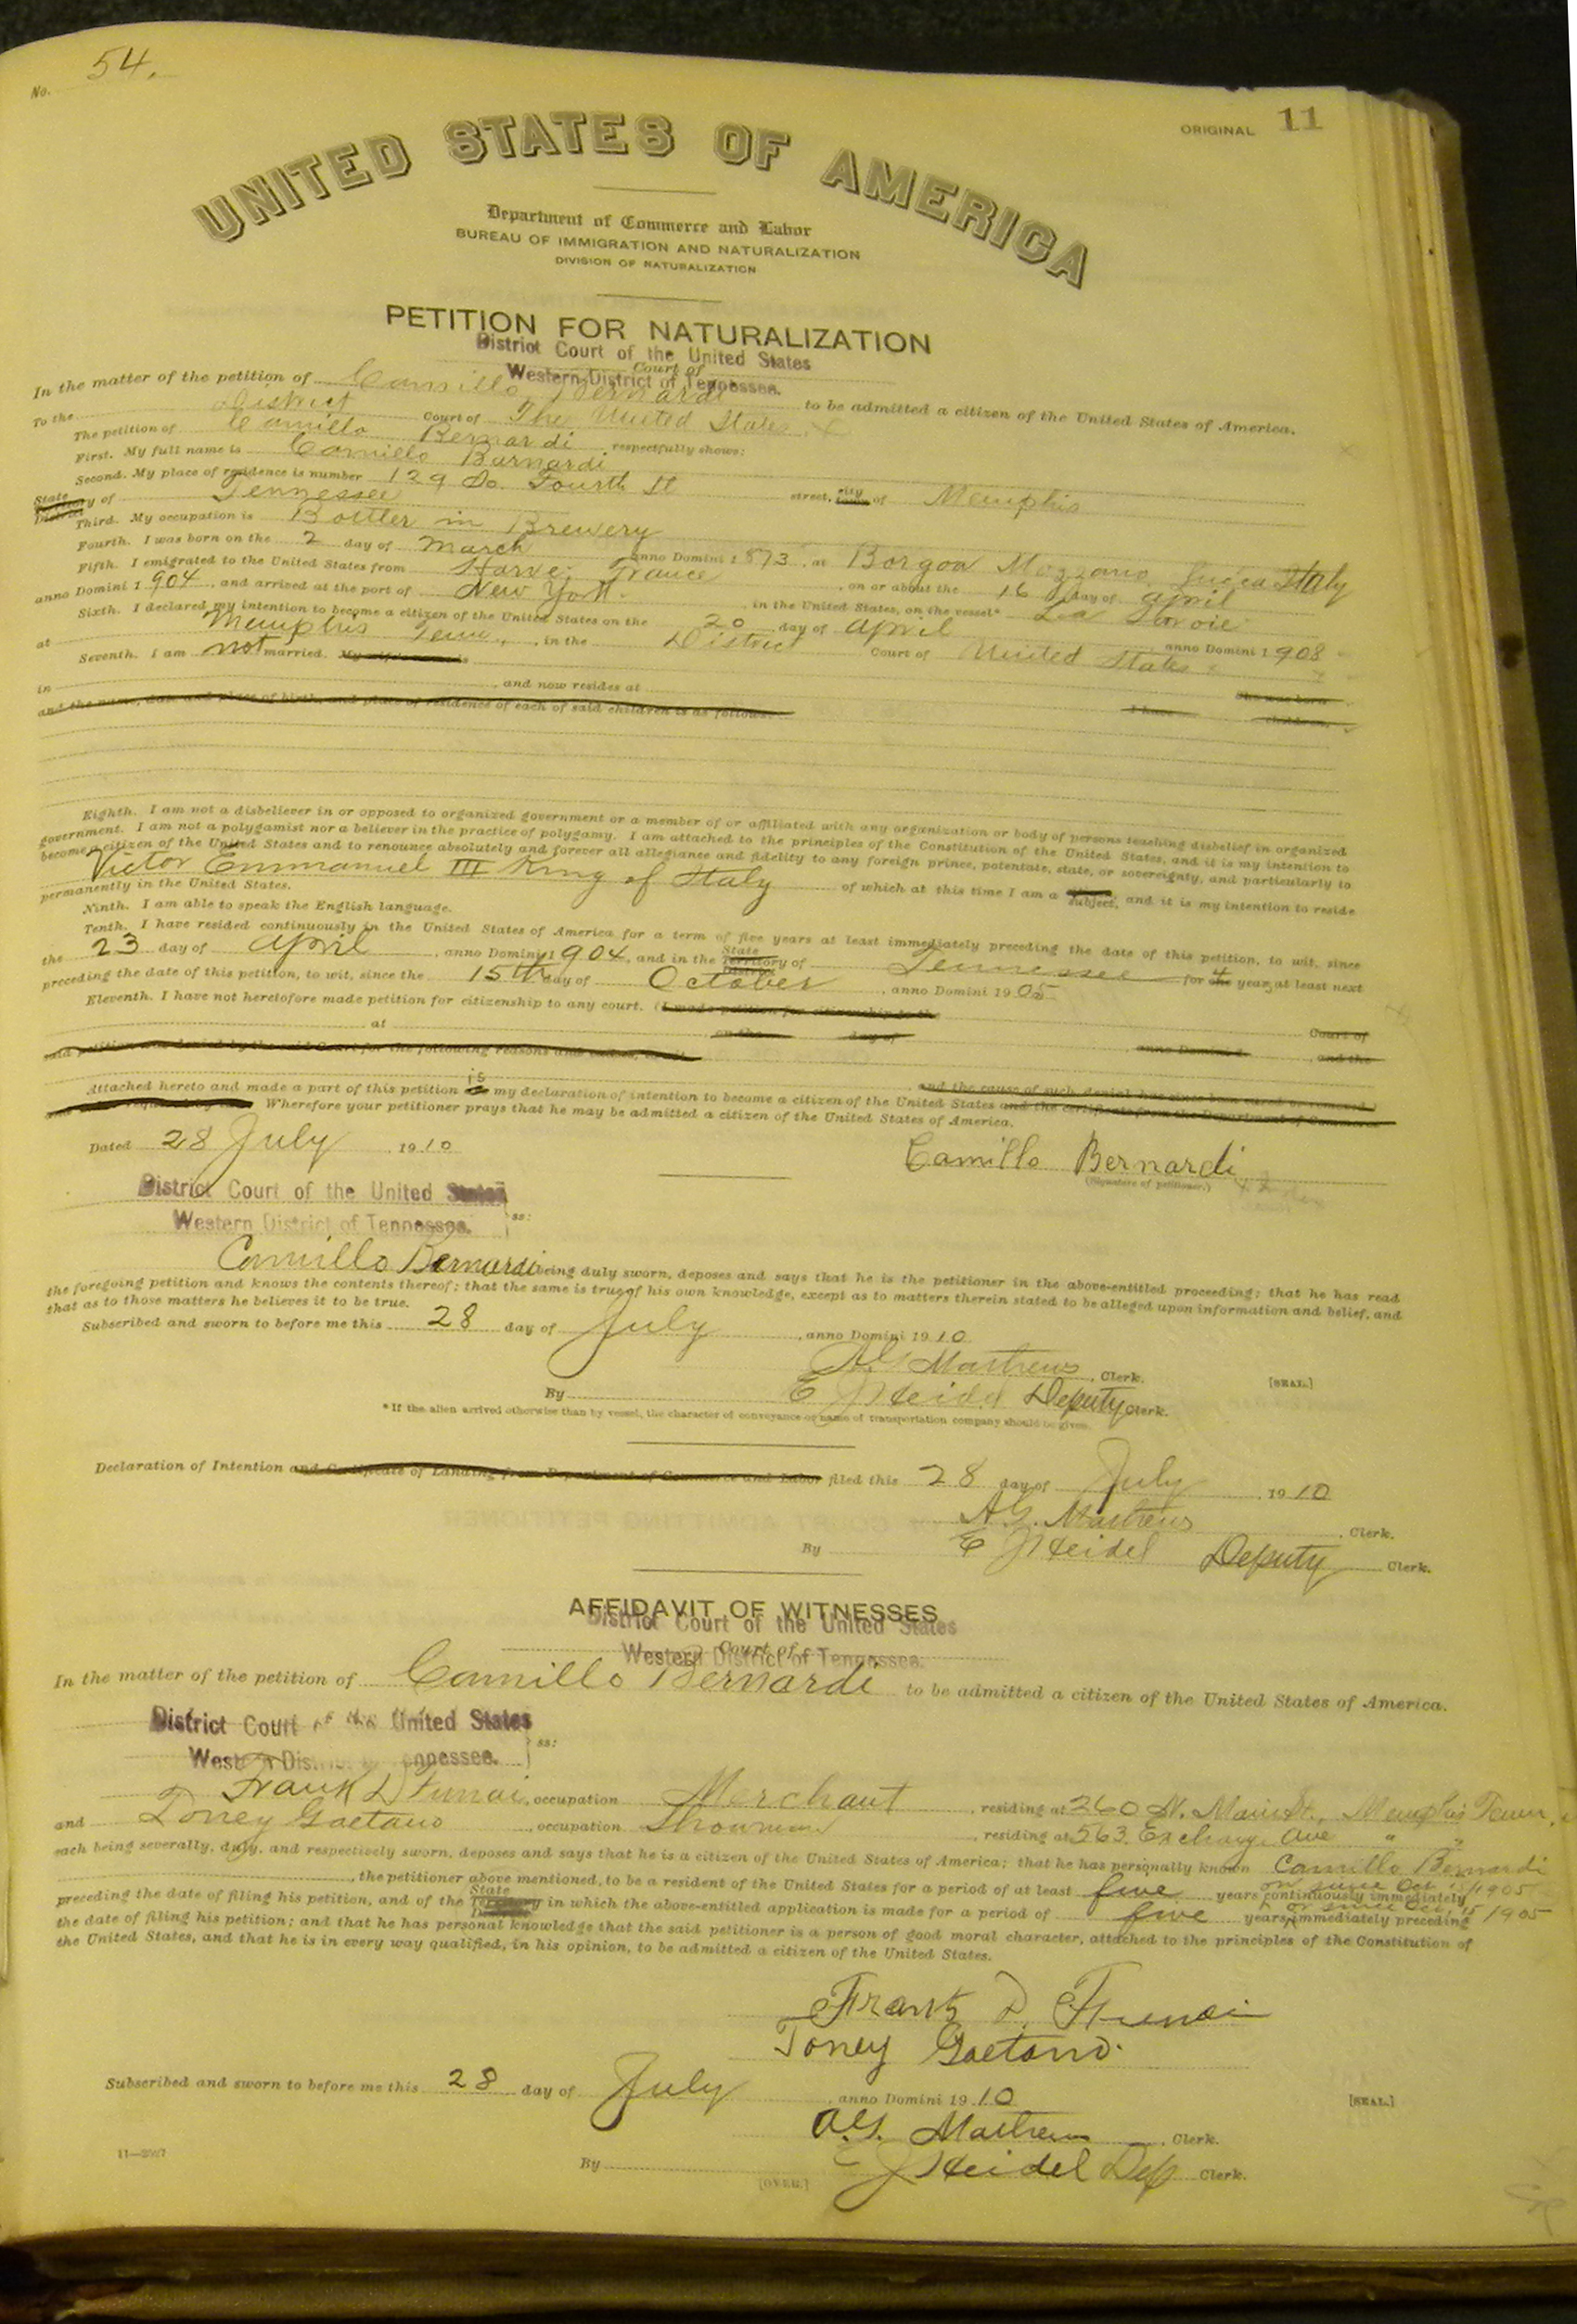 No. 54.
ORIGINAL 11
UNITED STATES OF AMERICA
Department of Commerce and Labor
BUREAU OF IMMIGRATION AND NATURALIZATION
DIVISION OF NATURALIZATION
PETITION FOR NATURALIZATION
District Court of the United States
Court of
Western District of Tennessee.
In the matter of the petition of Camillo Bernardi to be admitted a citizen of the United States of America.
To the District Court of The United States
The petition of Camillo Bernardi, respectfully shows:
First. My full name is Camillo Bernardi
Second. My place of residence is number 129 So. Fourth St street, city of Memphis
State Territory of Tennessee
Third. My occupation is Bottler in Brewery
Fourth. I was born on the 2 day of March anno Domini 1873, at Borgoa Mozzano, Italy
Fifth. I emigrated to the United States from Harve, France, on or about the 16 day of April
anno Domini 1904, and arrived at the port of New York, in the United States, on the vessel* La Savoie
Sixth. I declared my intention to become a citizen of the United States on the 20 day of April anno Domini 1908
at Memphis Tenn., in the District Court of United States
Seventh. I am not married. My wife's name is
in , and now resides at She was born
I have children,
and the name, date and place of birth, and place of residence of each of said children is as follows:
Eighth. I am not a disbeliever in or opposed to organized government or a member of or affiliated with any organization or body of persons teaching disbelief in organized
government. I am not a polygamist nor a believer in the practice of polygamy. I am attached to the principles of the Constitution of the United States, and it is my intention to
become a citizen of the United States and to renounce absolutely and forever all allegiance and fidelity to any foreign prince, potentate, state, or sovereignty, and particularly to
Victor Emmanuel III King of Italy of which at this time I am a subject, and it is my intention to reside
permanently in the United States.
Ninth. I am able to speak the English language.
Tenth. I have resided continuously in the United States of America for a term of five years at least immediately preceding the date of this petition, to wit, since
the 23 day of April, anno Domini 1904, and in the State Territory District of Tennessee for 4 one years at least next
preceding the date of this petition, to wit, since the 15th day of October, anno Domini 1905
Eleventh. I have not heretofore made petition for citizenship to any court. (I made petition for citizenship to the
Court of at on the day of anno Domini 1 , and the
said petition was denied by the said Court for the following reasons and causes, to wit,
and the cause of such denial has since been cured or removed.)
Attached hereto and made a part of this petition is my declaration of intention to become a citizen of the United States and the certificate from the Department of Commerce
Wherefore your petitioner prays that he may be admitted a citizen of the United States of America.
Dated 28 July, 1910
Camillo Bernardi
(Signature of petitioner.)
District Court of the United States
Western District of Tennessee. ss:
Camillo Bernardi being duly sworn, deposes and says that he is the petitioner in the above-entitled proceeding; that he has read
the foregoing petition and knows the contents thereof; that the same is true of his own knowledge, except as to matters therein stated to be alleged upon information and belief, and
that as to those matters he believes it to be true.
Subscribed and sworn to before me this 28 day of July, anno Domini 1910
A G Mathews, Clerk.
[SEAL.]
By E J Heidel Deputy Clerk.
*If the alien arrived otherwise than by vessel, the character of conveyance or name of transportation company should be given.
Declaration of Intention and Certificate of Landing from Department of Commerce and Labor filed this 28 day of July, 1910
A.G. Mathews, Clerk.
By E J Heidel Deputy Clerk.
AFFIDAVIT OF WITNESSES
District Court of the United States
Court of
Western District of Tennessee.
In the matter of the petition of Camillo Bernardi to be admitted a citizen of the United States of America.
District Court of the United States
Western District Tennessee. ss:
Frank D, occupation Merchant, residing at 260 N. Main St., Memphis Tenn.
and Toney Gaetano, occupation Showman, residing at 563 Exchange Ave " "
each being severally, duly, and respectively sworn, deposes and says that he is a citizen of the United States of America; that he has personally known Camillo Bernardi
, the petitioner above mentioned, to be a resident of the United States for a period of at least five years continuously immediately or since Oct 15 1905
preceding the date of filing his petition, and of the State Territory District in which the above-entitled application is made for a period of five years immediately preceding or since Oct, 15 1905
the date of filing his petition; and that he has personal knowledge that the said petitioner is a person of good moral character, attached to the principles of the Constitution of
the United States, and that he is in every way qualified, in his opinion, to be admitted a citizen of the United States.
Frank D.
Toney Gaetano.
Subscribed and sworn to before me this 28 day of July, anno Domini 1910
[SEAL.]
A.G. Mathews, Clerk.
By E J Heidel Dep Clerk.
[OVER.]